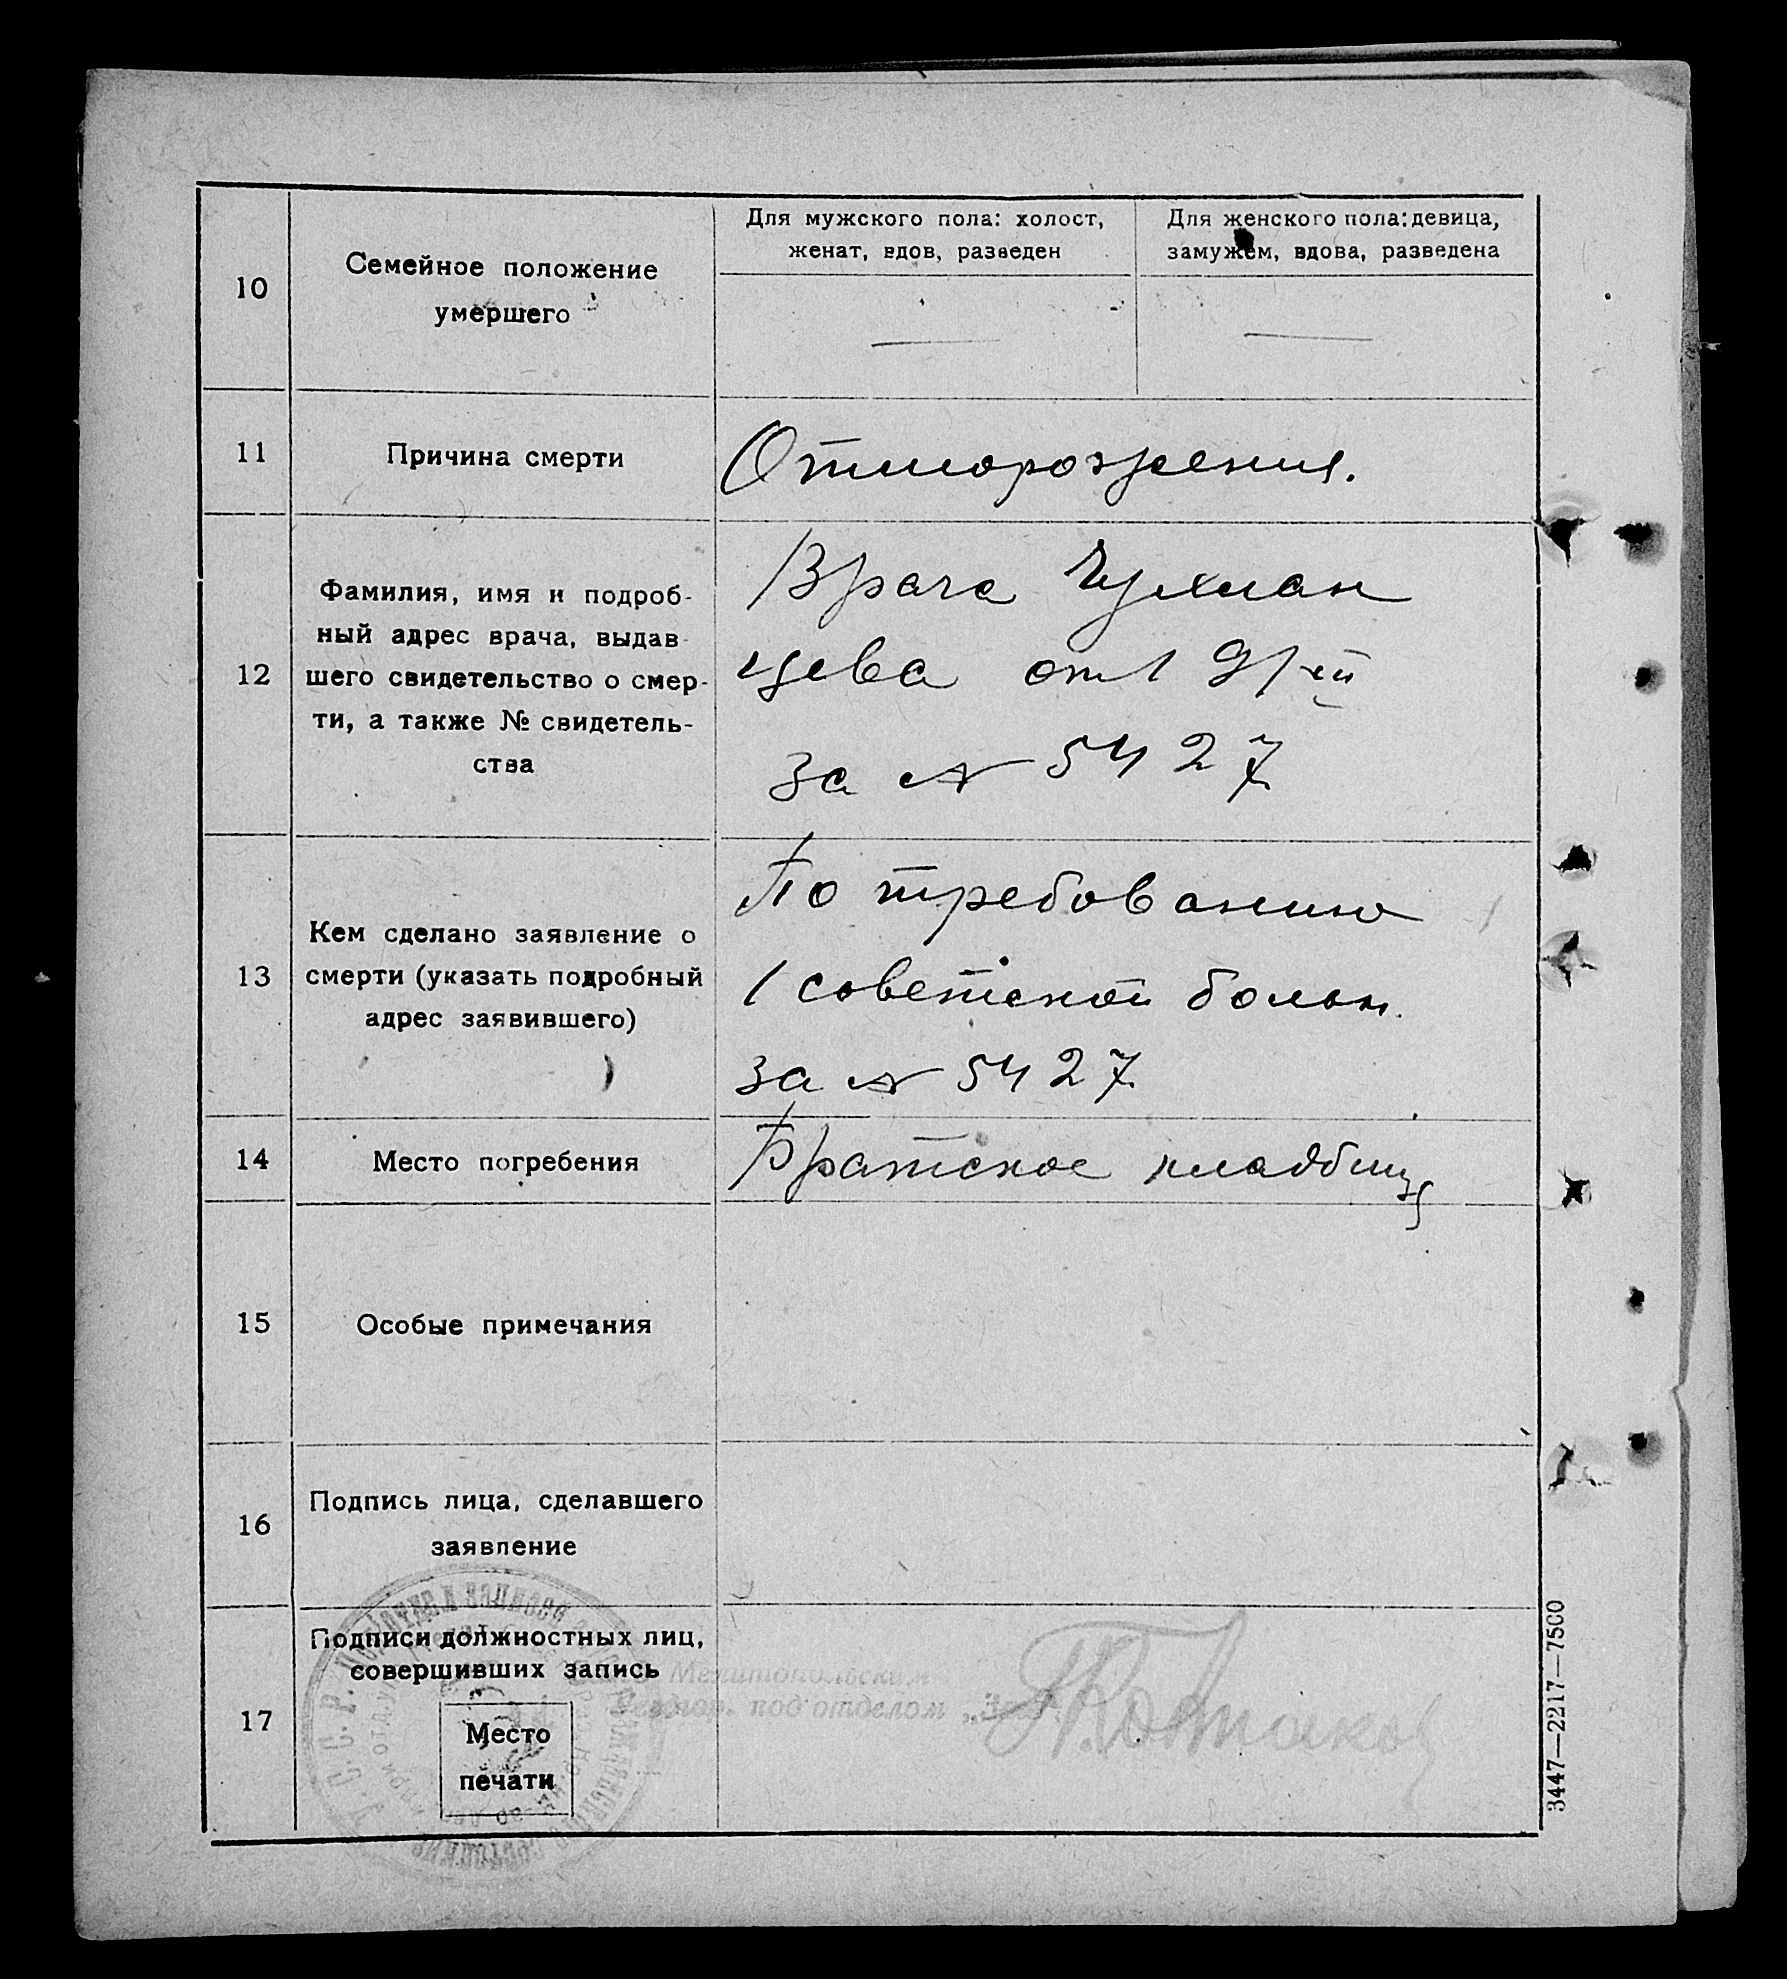 10
Семейное положение
умершего
Для мужского пола: холост,
женат, вдов, разведен
Для женского пола: девица,
замужем, вдова, разведена
11
Причина смерти
Отморожения.
12
Фамилия, имя и подроб-
ный адрес врача, выдав-
шего свидетельство о смер-
ти, а также № свидетель-
ства
Врача Чухман
цева от 9/XII
за № 5427
13
Кем сделано заявление о
смерти (указать подробный
адрес заявившего)
По требованию
1 советской больн.
за № 5427
14
Место погребения
Братское кладбище
15
Особые примечания
16
Подпись лица, сделавшего
заявление
17
Подписи должностных лиц,
совершивших запись
Место
печати
Мелитопольским
под отделом
3447—2217—7500